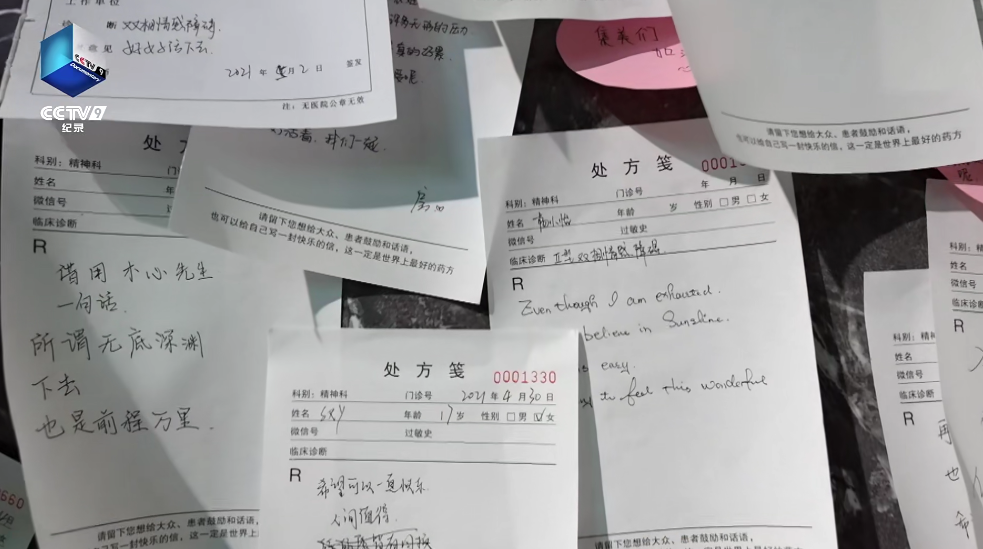 CCTV 9
Documentary
CCTV 9
纪录
工作单位
诊 断 双相情感障碍
意见 好好活下去.
2021 年 5 月 2 日 签发
注：无医院公章无效
集美们
请留下您想给大众、患者鼓励和话语，
也可以给自己写一封快乐的信，这一定是世界上最好的药方
请留下您想给大众、患者鼓励和话语，
也可以给自己写一封快乐的信，这一定是世界上最好的药方
处方
科别：精神科
姓名
微信号
临床诊断
R
借用 木心先生
一句话.
所谓无底深渊
下去
也是前程万里.
请留下您想给大众、患者鼓励和话语，
也可以给自己写一封快乐的信，这一定是世界上
处方笺
科别：精神科 门诊号 年 月 日
姓名 年龄 岁 性别 □男 □女
微信号 过敏史
临床诊断 II型双相情感障碍
R
Even though I am exhausted.
believe in Sunshine.
easy.
to feel this wonderful
请留下您想给大众、患者鼓励和话语，
也可以给自己写一封快乐的信，这一定是世界上最好的药方
处方笺
0001330
科别：精神科 门诊号 2021 年 4 月 30 日
姓名 SXY 年龄 17 岁 性别 □男 ☑女
微信号 过敏史
临床诊断
R
希望可以一直快乐
人间值得.
科别：精神
姓名
微信号
临床诊断
R
再
也
科别：
姓名
微信号
临床诊断
R
660